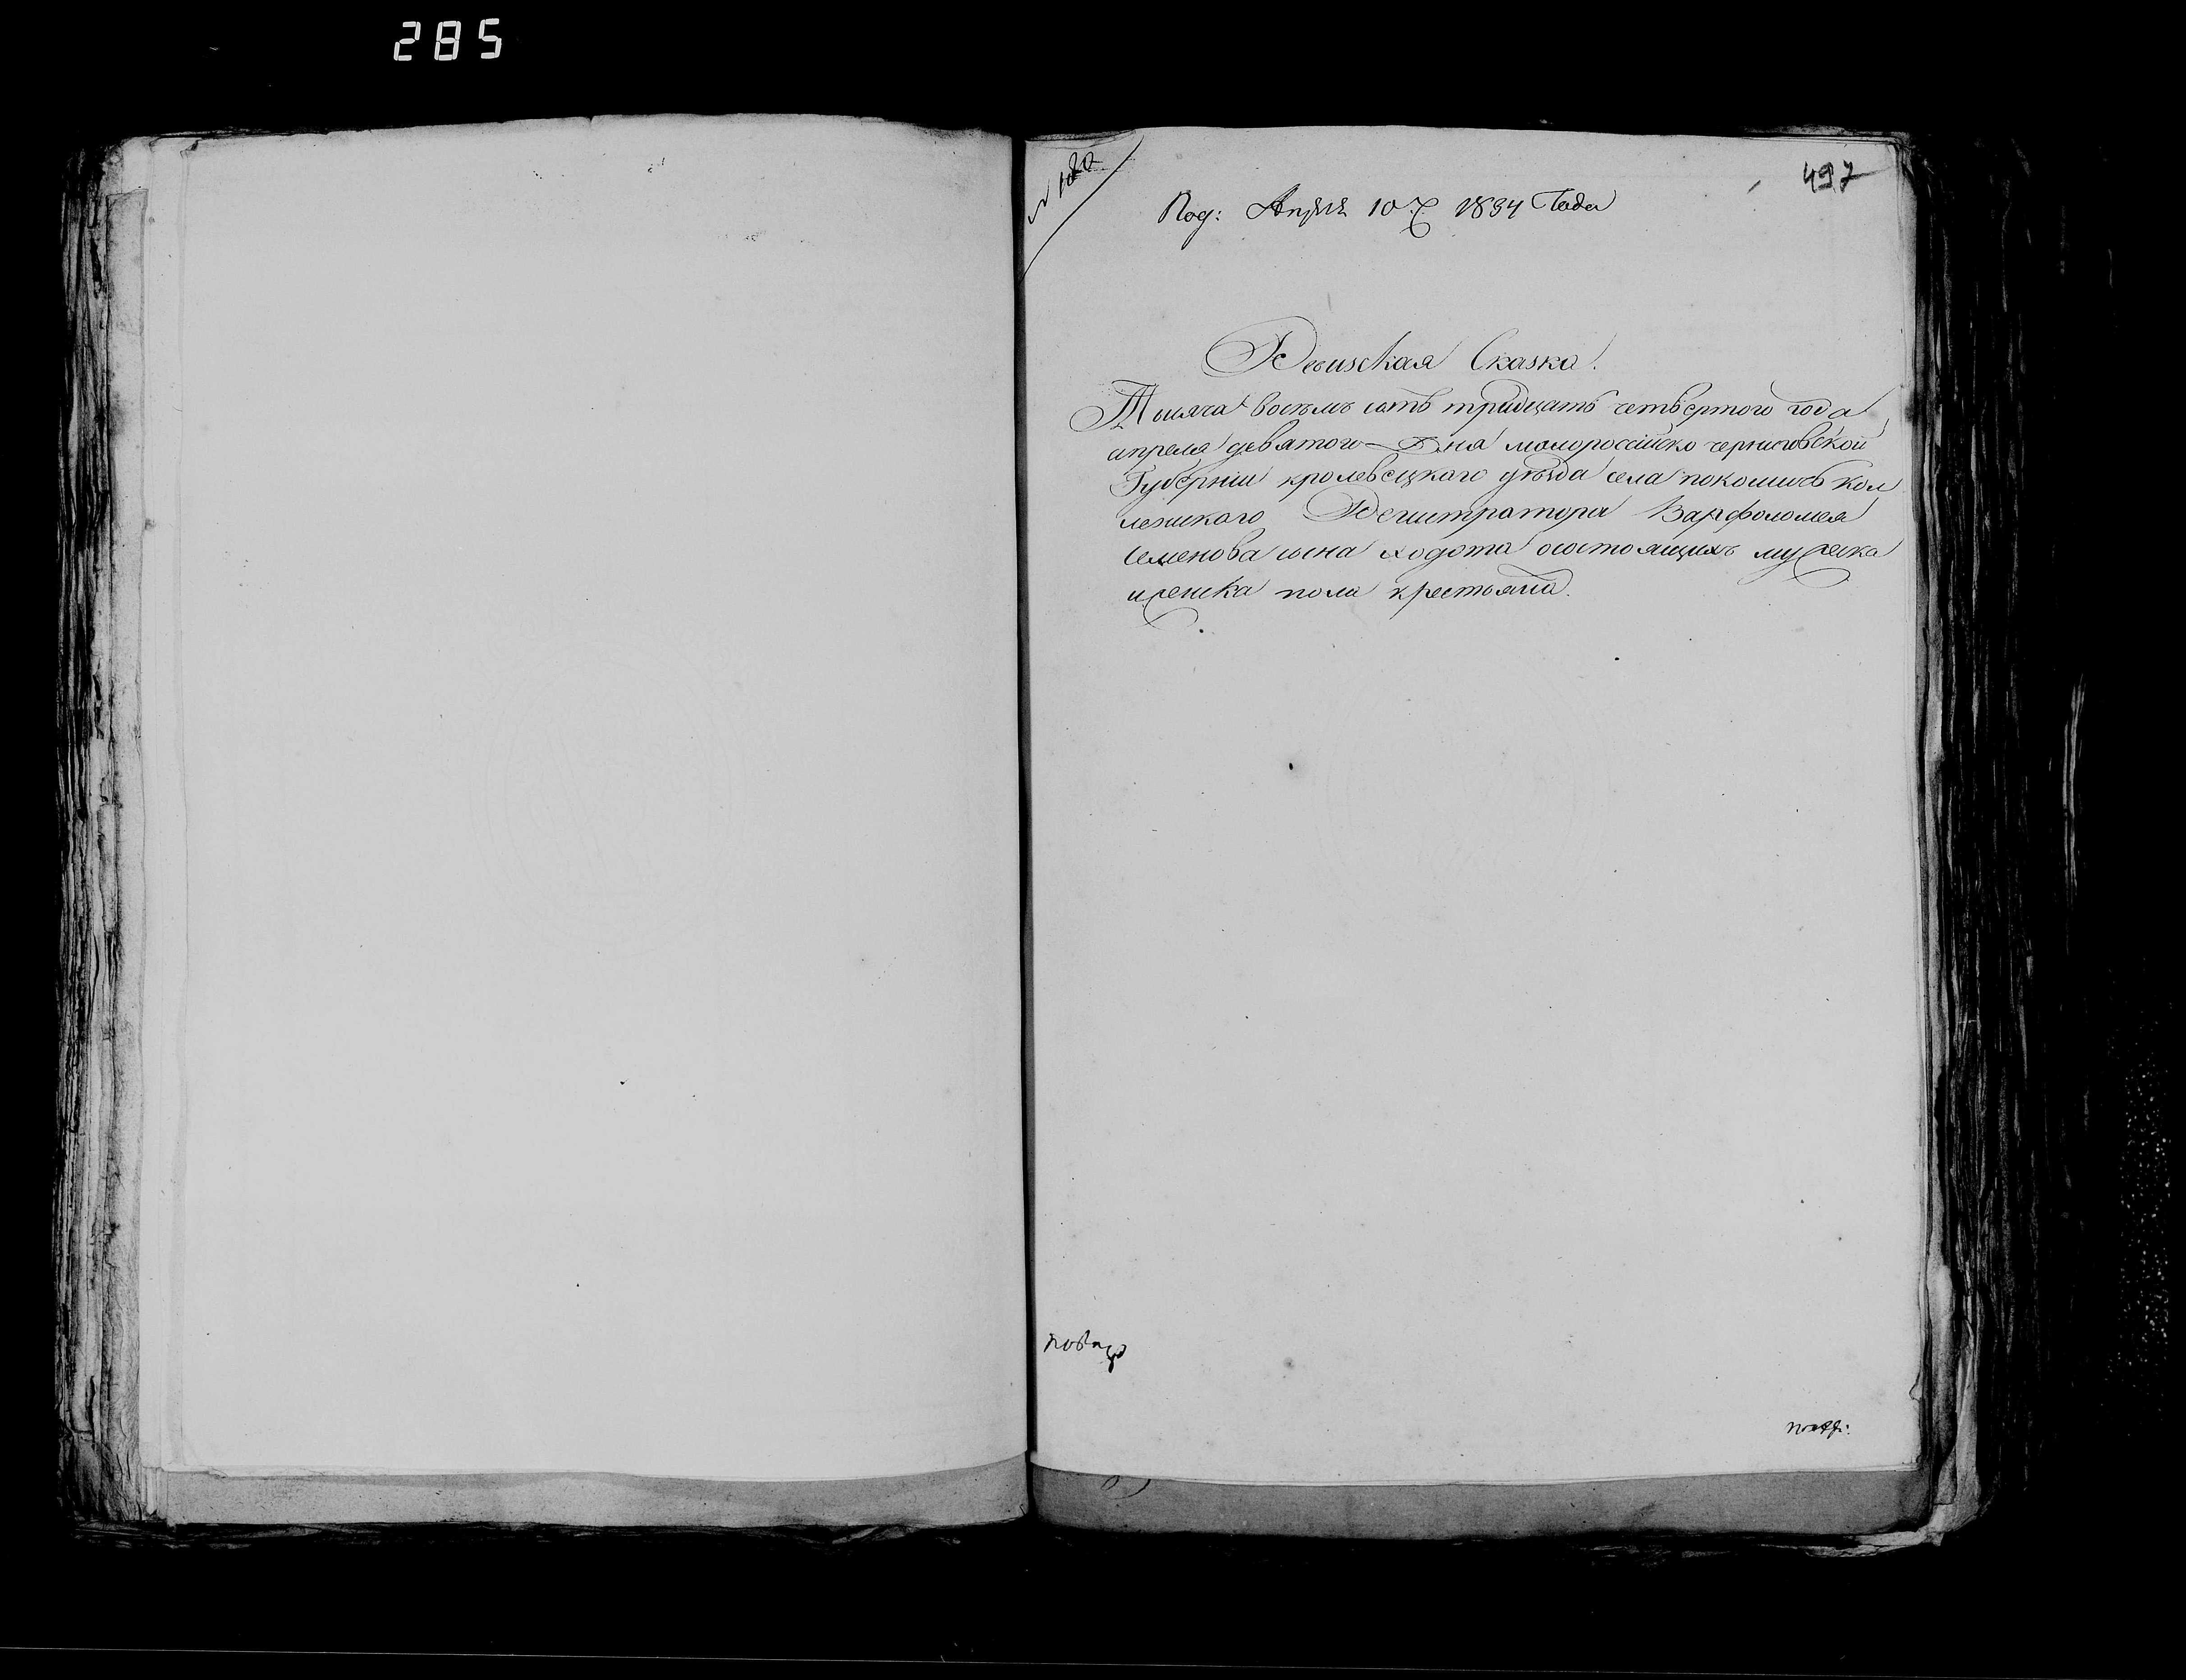 285
497
Под: Апреля 10 1834 Года
Ревизская Сказка
Тысяча восемъ сотъ тридцать четвертого года
апреля девятого Дня малороссийско черниговской
Губернии кролевецкого уезда села покошичь кол
лежского Регистратора Варфоломея
Семенова сына ходота осостоящихъ мужеска
ижеска пола крестьяна.